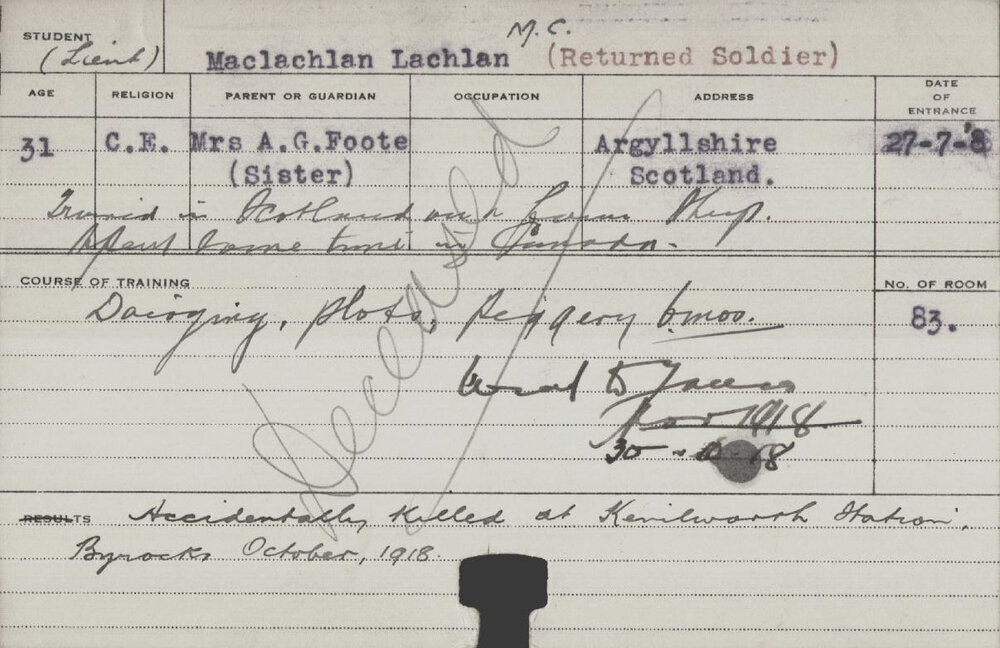 STUDENT
(Lieut)
M.C.
Maclachlan Lachlan (Returned Soldier)
AGE RELIGION PARENT OR GUARDIAN OCCUPATION ADDRESS DATE OF ENTRANCE
31 C.E. Mrs A.G.Foote Argyllshire 27-7-'8
(Sister) Scotland.
Trained in Scotland and Sheep.
Spent some time in Canada.
Deceased
COURSE OF TRAINING No. OF ROOM
Dairying, plots, Piggery 6 mos. 83.
Nov 1918
30-10-18
RESULTS Accidentally killed at Kenilworth Station,
Byrock, October, 1918.